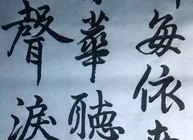 每依
華聽
聲淚